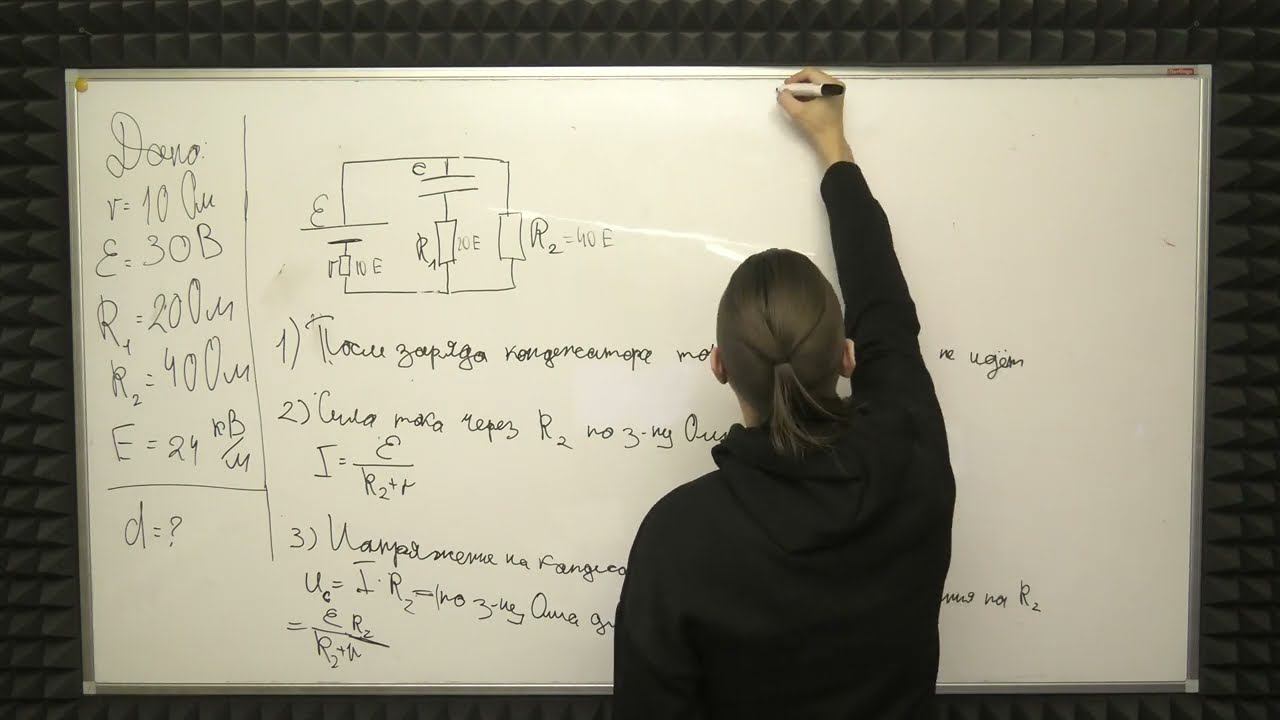 Дано:
r=10 Ом
Ɛ=30В
R₁=20Ом
R₂=40Ом
E=24 кВ/м
d=?
Ɛ
r 10 E
C
R₁ 20 E
R₂=40 E
1) После заряда конденсатора не идёт
2) Сила тока через R₂ по з-ну
I=Ɛ/(R₂+r)
3) Напряжение на
U_c=I·R₂=(по з-ну Ома на R₂
=Ɛ R₂/(R₂+r)